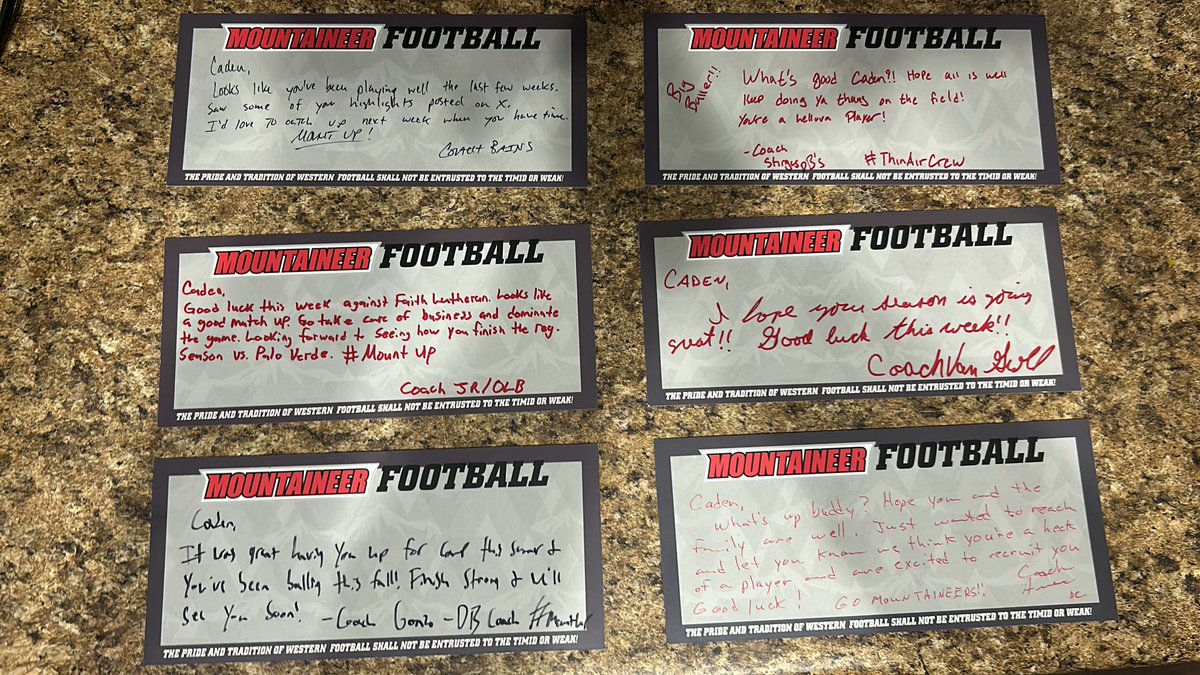 MOUNTAINEER FOOTBALL
Caden,
Looks like you've been playing well the last few weeks.
Saw some of your highlights posted on X.
I'd love to catch up next week when you have time.
MOUNT UP!
COACH BAINS
THE PRIDE AND TRADITION OF WESTERN FOOTBALL SHALL NOT BE ENTRUSTED TO THE TIMID OR WEAK!
MOUNTAINEER FOOTBALL
Big
Baller!!
What's good Caden?! Hope all is well
keep doing ya thang on the field!
You're a hellova Player!
-Coach
#ThinAirCrew
THE PRIDE AND TRADITION OF WESTERN FOOTBALL SHALL NOT BE ENTRUSTED TO THE TIMID OR WEAK!
MOUNTAINEER FOOTBALL
Caden,
Good luck this week against Faith Lutheran. Looks like
a good match up. Go take care of business and dominate
the game. Looking forward to seeing how you finish the reg.
Season vs. Palo Verde. #Mount Up
Coach JR/OLB
THE PRIDE AND TRADITION OF WESTERN FOOTBALL SHALL NOT BE ENTRUSTED TO THE TIMID OR WEAK!
MOUNTAINEER FOOTBALL
CADEN,
I hope your season is going
great!! Good luck this week!!
Coach Van
THE PRIDE AND TRADITION OF WESTERN FOOTBALL SHALL NOT BE ENTRUSTED TO THE TIMID OR WEAK!
MOUNTAINEER FOOTBALL
Caden,
It was great having you up for camp this summer &
You've been balling this fall! Finish Strong & we'll
See You Soon! -Coach Gonzo -DB Coach
THE PRIDE AND TRADITION OF WESTERN FOOTBALL SHALL NOT BE ENTRUSTED TO THE TIMID OR WEAK!
MOUNTAINEER FOOTBALL
Caden,
What's up buddy? Hope you and the
family are well. Just wanted to reach
and let you know we think you're a heck
of a player and are excited to recruit you
Good luck! GO MOUNTAINEERS!! Coach
DC
THE PRIDE AND TRADITION OF WESTERN FOOTBALL SHALL NOT BE ENTRUSTED TO THE TIMID OR WEAK!